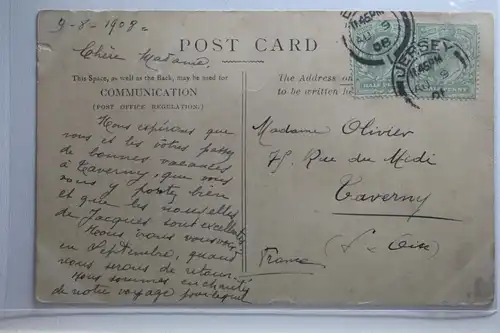 9-8-1908=
Chère Madame
POST CARD
This Space, as well as the Back, may be used for
COMMUNICATION
(POST OFFICE REGULATION)
Nous espérons que
vous et les vôtres passez
de bonnes vacances
à Taverny, que vous
vous y portez bien
et que les nouvelles
de Jacques sont excellentes.
Nous vous
en Septembre, quand
nous serons de retour.
Nous sommes enchantés
de notre voyage
The Address on
to be written he
Madame Olivier
75 Rue du Midi
Taverny
(S.-Oise
France
11.45PM
AU 9
08
JERSEY
11.45PM
AU 9
HALF
PENNY